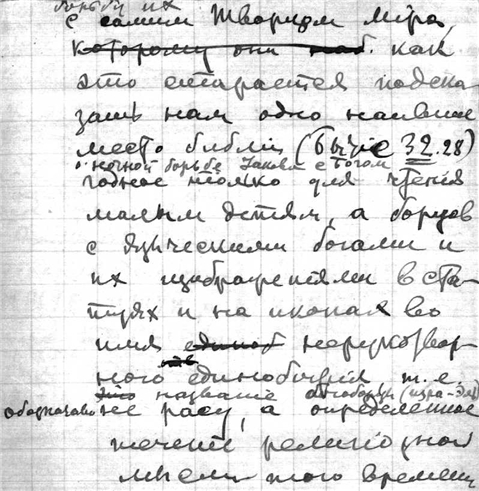 борьбу их
с самим Творцом мира,
которому они как
это старается подска
зать нам одно наивное
место библіи (бытіе 32.28)
о ночной борьбе Іакова с Богом
годное только для чтенія
малым детям, а борцов
с языческими богами и
их изображеніями в ста-
туях и на иконах во
имя нерукотвор
ного единобожія т.е.
это название богоборцы (изра-эль)
обозначало не расу, а определенное
теченіе религіозной
мысли того времени